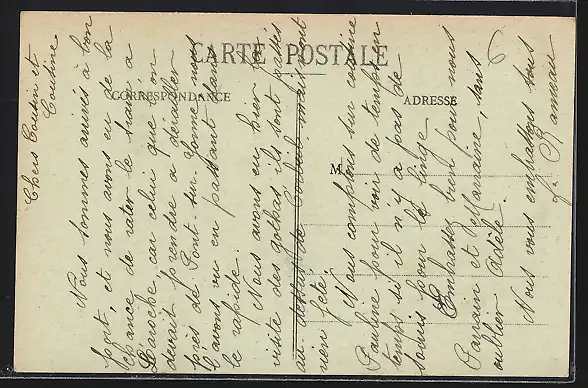 CARTE POSTALE
CORRESPONDANCE
ADRESSE
M
Chers Cousin et
Cousine
Nous sommes arrivés à bon
port, et nous avons eu de la
chance de rater le train à
Laroche car celui que on
devait prendre a dérailler
près de Pont-sur-Yonne nous
l'avons vu en passant dans
le rapide.
Nous avons eu hier la
visite des gothas ils sont passés
au-dessus de mais n'ont
rien jeté.
Nous comptons sur cousine
Pauline pour voir de temps en
temps si il n'y a pas de
souris dans le linge
Embrassez bien pour nous
Parrain et Marraine, sans
oublier Adèle.
Nous vous embrassons tous
Rameau